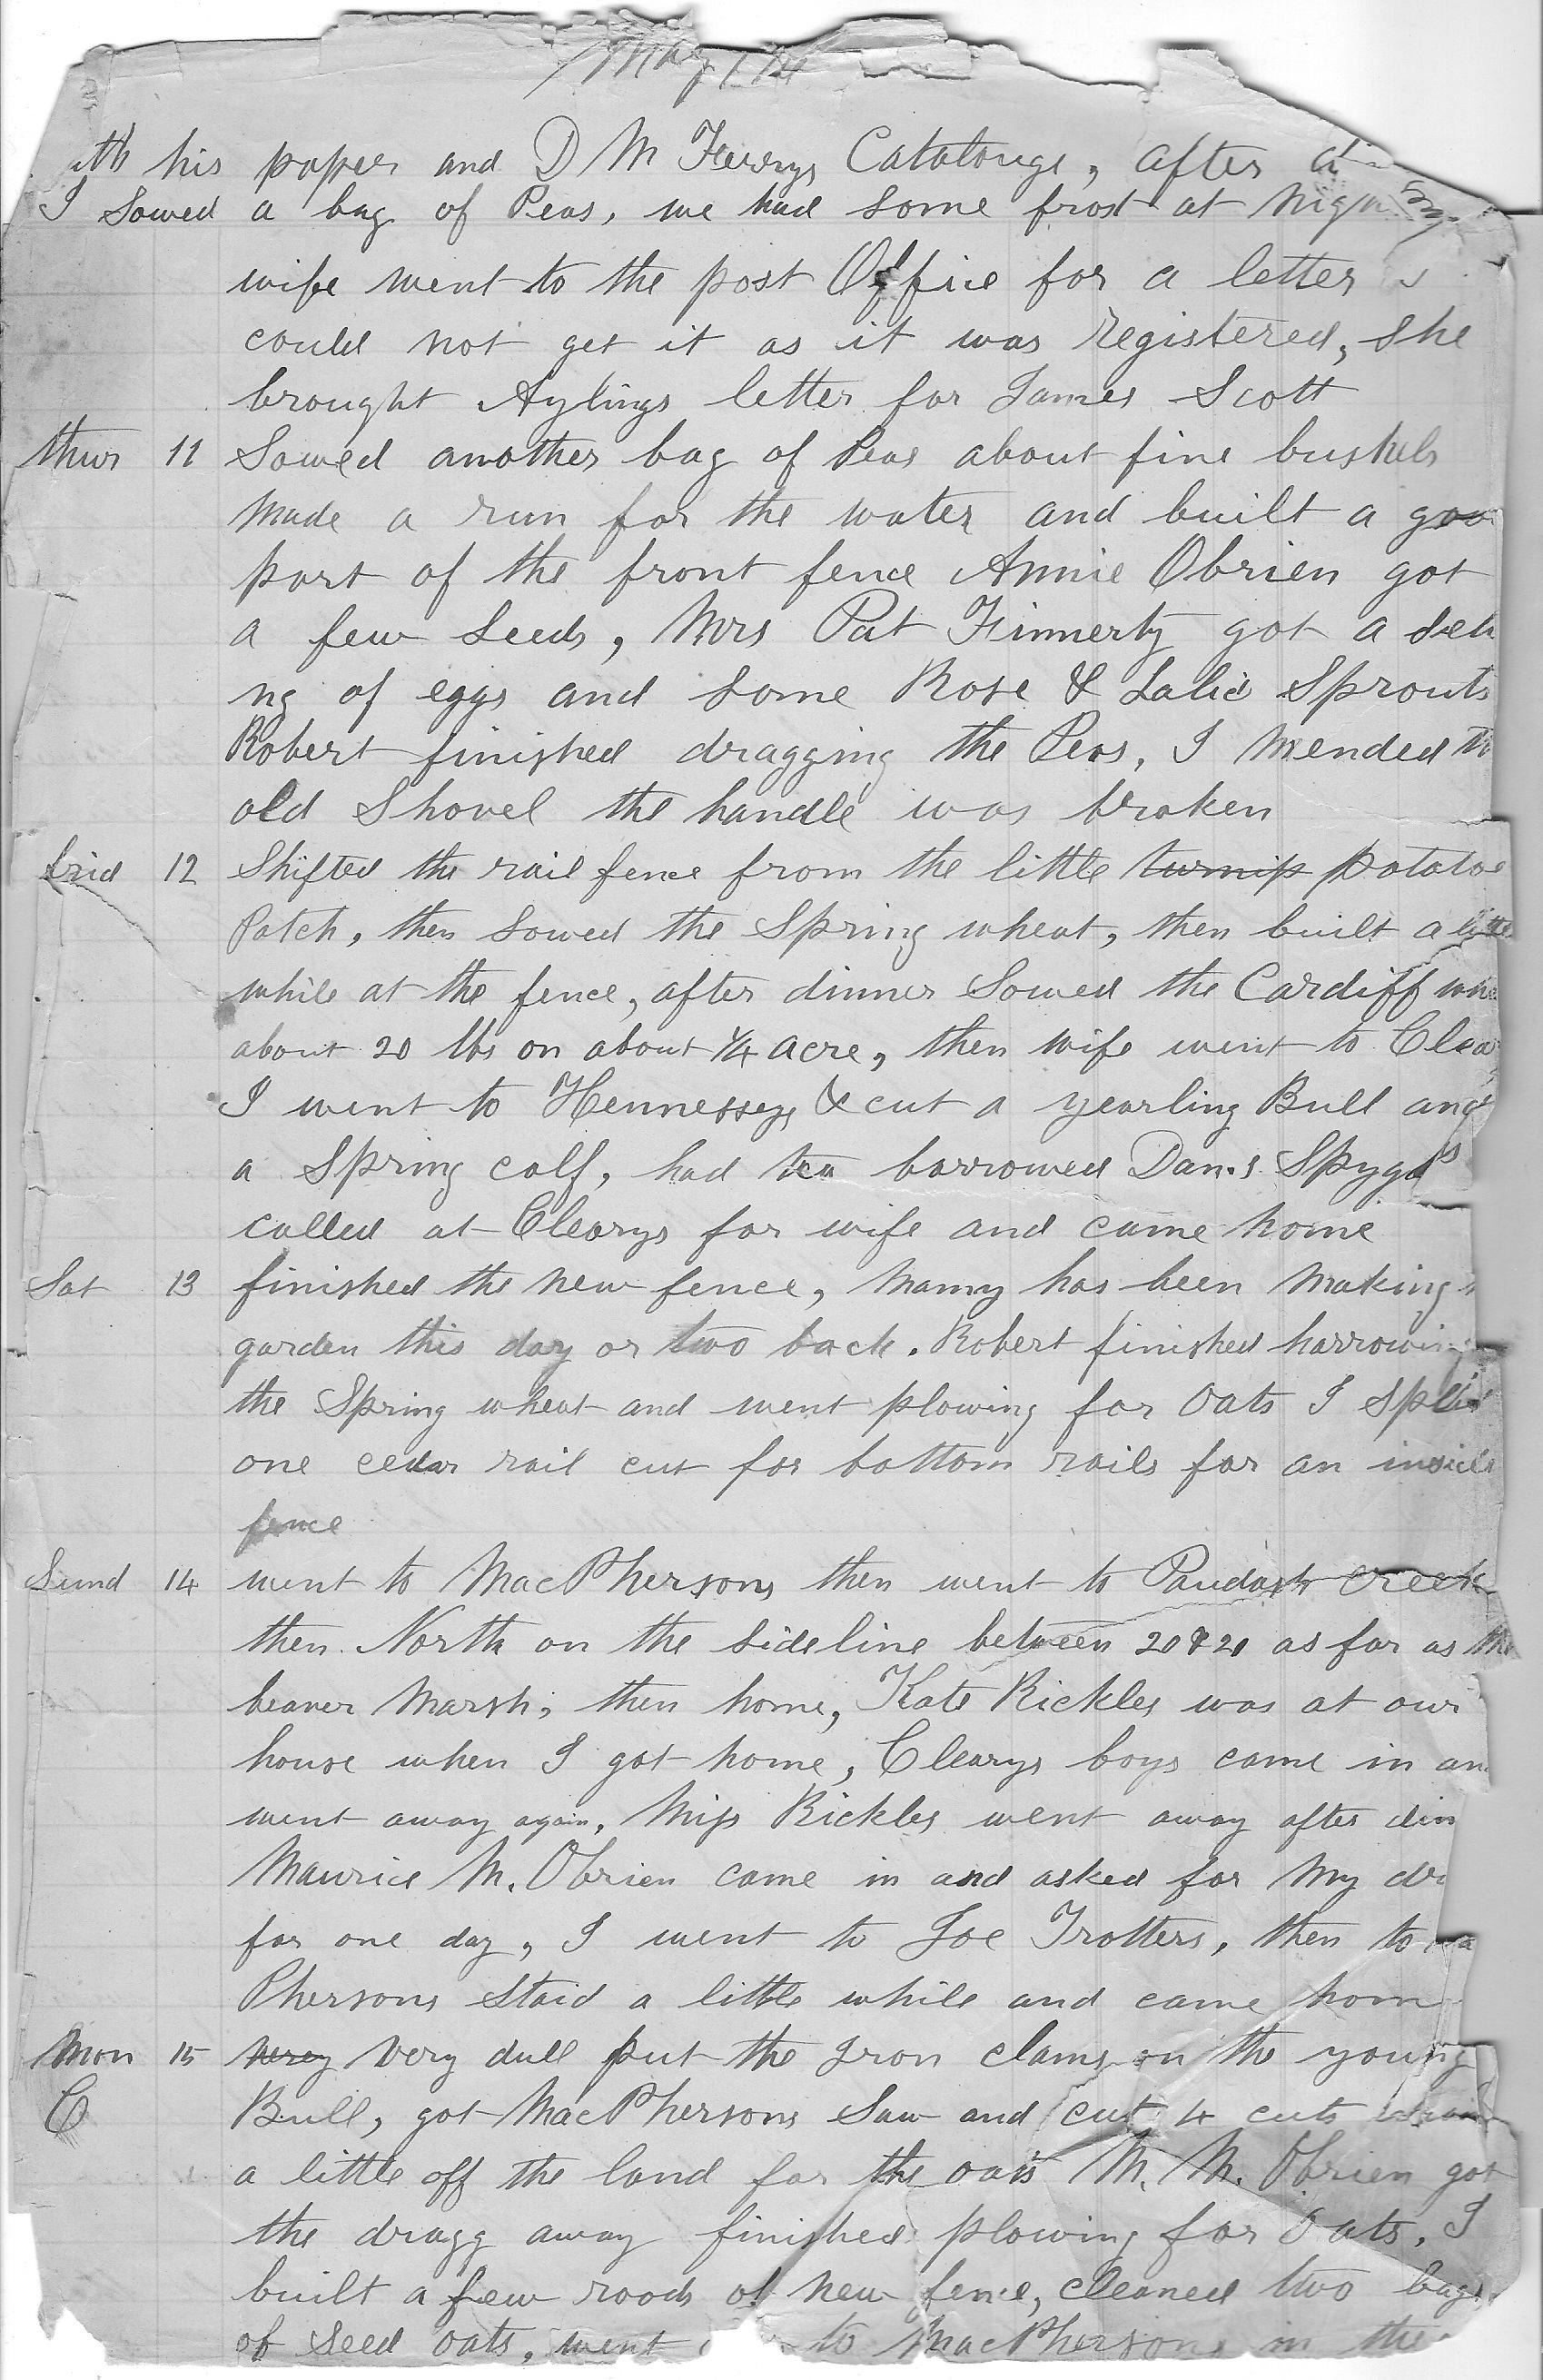 May
his paper and D M Ferrys Catalouge, after
I Sowed a bag of Peas, we had some frost at
wife went to the post Office for a letter
could not get it as it was registered, she
brought Aylings letter for James Scott
thur 11 Sowed another bag of Peas about five bushels
Made a run for the water and built a
part of the front fence Annie Obrien got
a few Seeds, Mrs Pat Finnerty got a
ng of eggs and some Rose & Lalie Sprouts
Robert finished dragging the Peas, I mended
old Shovel the handle was broken
frid 12 Shifted the rail fence from the little turnip potatoe
Patch, then Sowed the Spring wheat, then built a
while at the fence, after dinner Sowed the Cardiff
about 20 lbs on about 1/4 acre, then wife went to
I went to Hennesseys & cut a yearling Bull and
a Spring calf, had tea borrowed
called at Clearys for wife and came home
Sat 13 finished the new fence, Mamy has been Making
garden this day or two back. Robert finished
the Spring wheat and went plowing for Oats I Split
one cedar rail cut for bottom rails for an
fence
Sund 14 went to MacPhersons then went to Paudash creek
then North on the sideline between 20 & 21 as far as
beaver Marsh, then home, Kate Rickles was at our
house when I got home, Clearys boys came in
went away again, Miss Rickles went away after
Maurice M. Obrien came in and asked for My
for one day, I went to Joe Trotters, then to
Phersons Staid a little while and came
Mon 15 verey very dull put the Iron clams on the young
C Bull, got MacPhersons Saw and cut 4 cuts
a little off the land for the oats M. M. Obrien got
the dragg away finished plowing for Oats, I
built a few roods of new fence, cleaned two bags
of Seed oats, went to MacPhersons in the